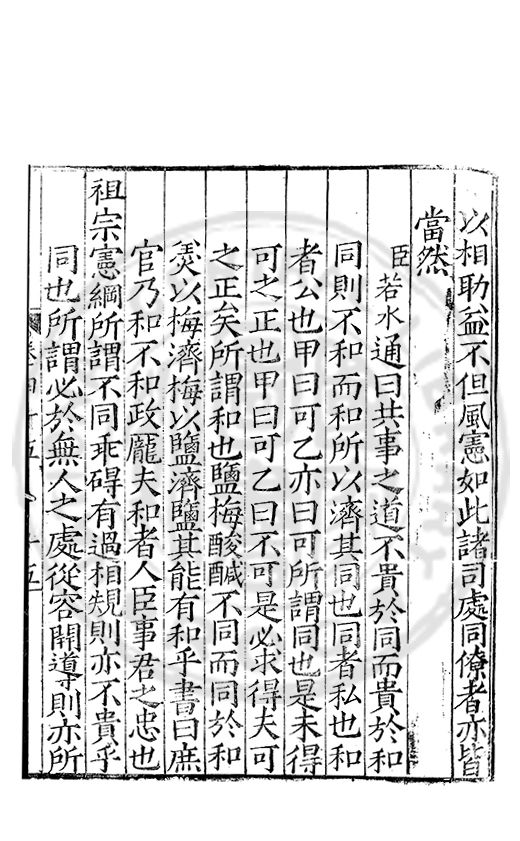 以相助益不但風憲如此諸司處同僚者亦皆
當然
臣若水通曰共事之道不貴於同而貴於和
同則不和而和所以濟其同也同者私也和
者公也甲曰可乙亦曰可所謂同也是未得
可之正也甲曰可乙曰不可是必求得夫可
之正矣所謂和也鹽梅酸醎不同而同於和
羮以梅濟梅以鹽濟鹽其能有和乎書曰庶
官乃和不和政厖夫和者人臣事君之忠也
祖宗憲綱所謂不同乖碍有過相規則亦不貴乎
同也所謂必於無人之處從容開導則亦所
卷四十五
十五